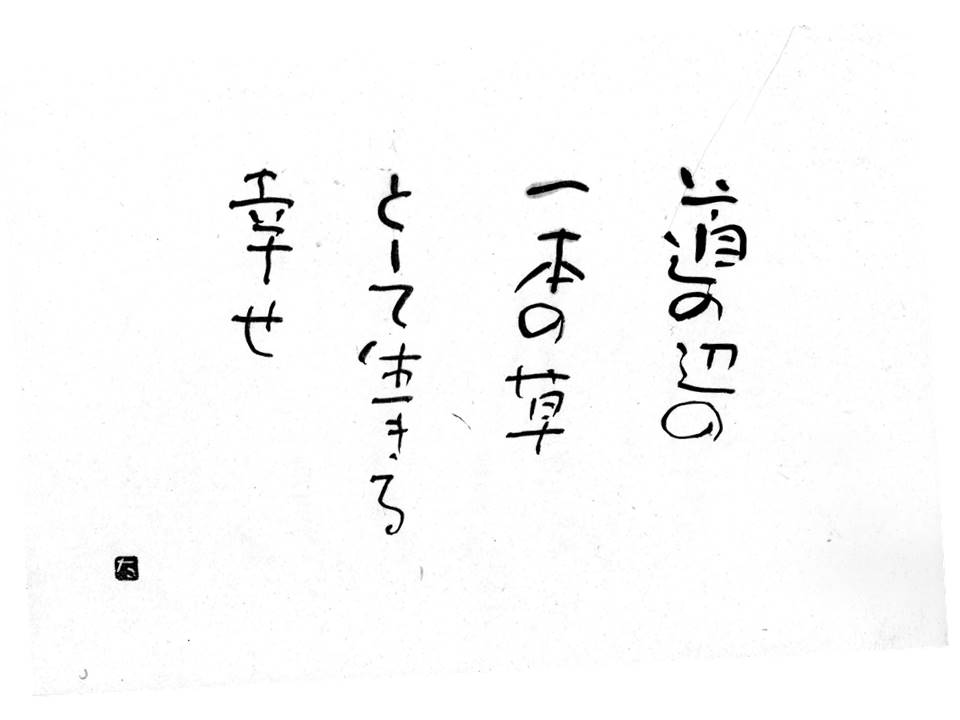 道の辺の
一本の草
として生きる
幸せ